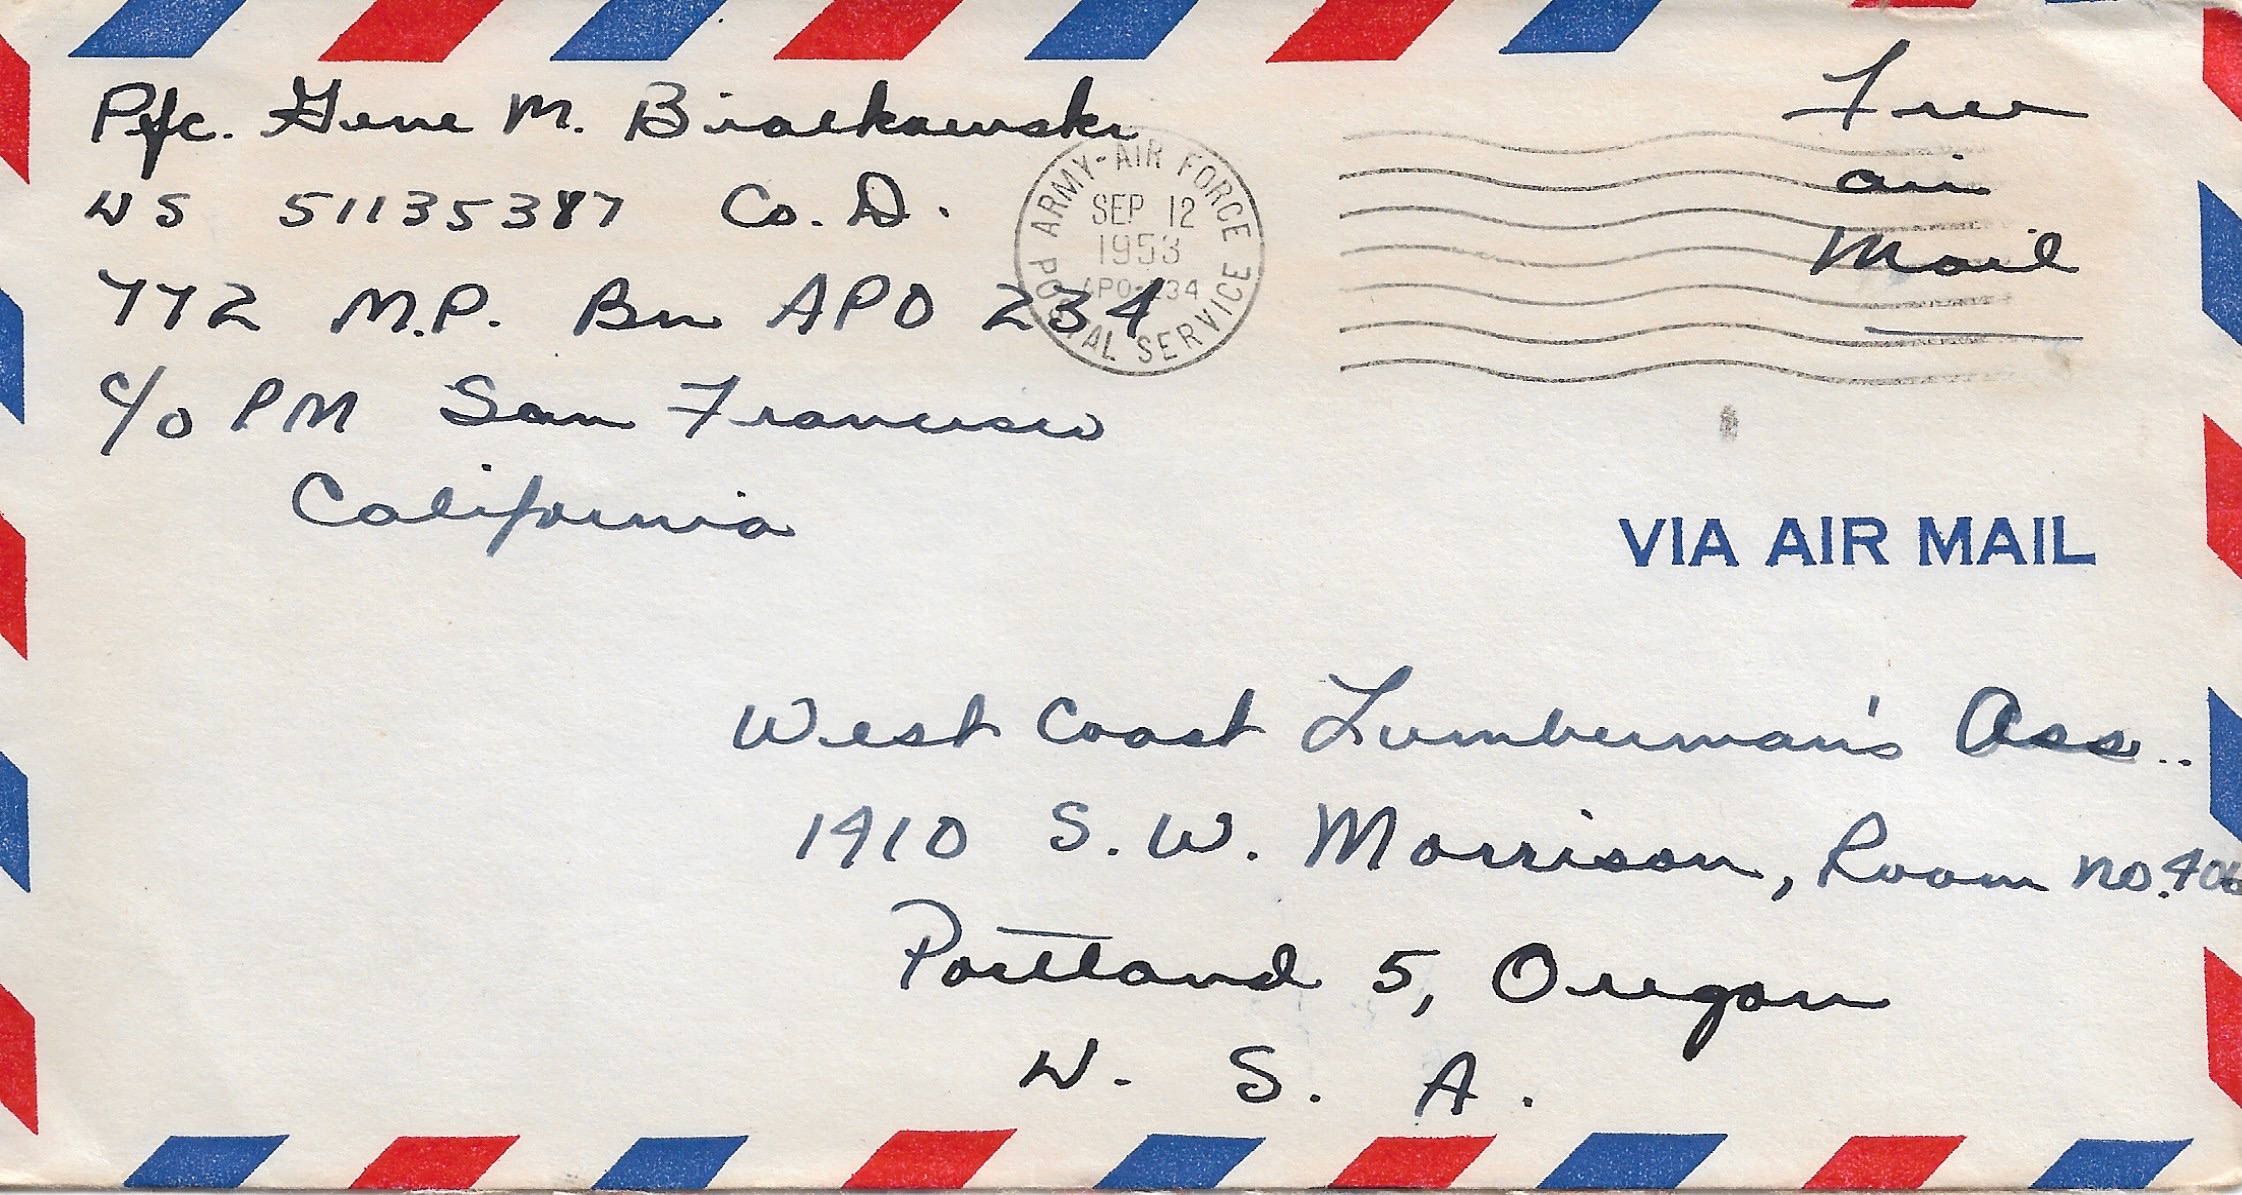 Pfc. Gene M. Bialkowski
US 51135387 Co. D.
772 M.P. Bn APO 234
c/o PM San Francisco
California
ARMY-AIR FORCE POSTAL SERVICE
SEP 12
1953
APO-234
Free
air
Mail
VIA AIR MAIL
West Coast Lumberman's Ass..
1410 S.W. Morrison, Room no. 406
Portland 5, Oregon
U. S. A.